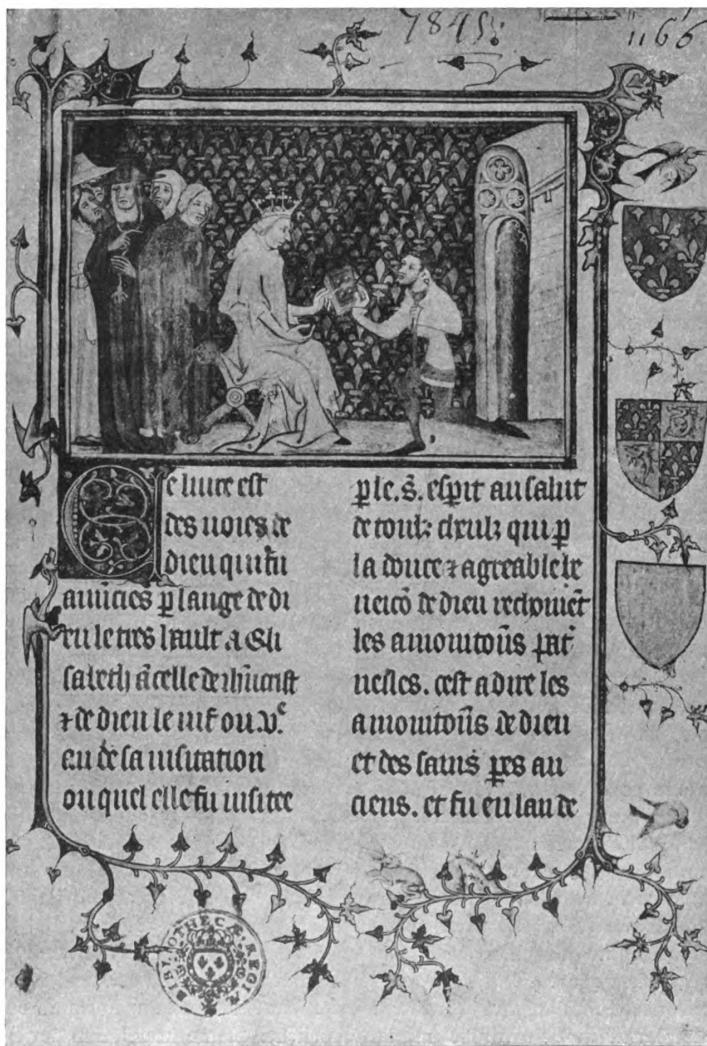 7845
1166
Ce liure est
des uoies de
dieu qui fu
par lange de di
eu le tres hault a Eli
zabeth ancelle de ihucrist
⁊ de dieu le uif ou .v.ᵉ
an de sa uisitation
ou quel elle fu uisitee
p le .s. esprit au salut
de touz ceulz qui p
la douce ⁊ agreable
de dieu recoiuent
les amonitons pat
nelles. cest a dire les
amonitons de dieu
et des sains peres an
ciens. et fu en lan de
BIBLIOTHECÆ REGIÆ